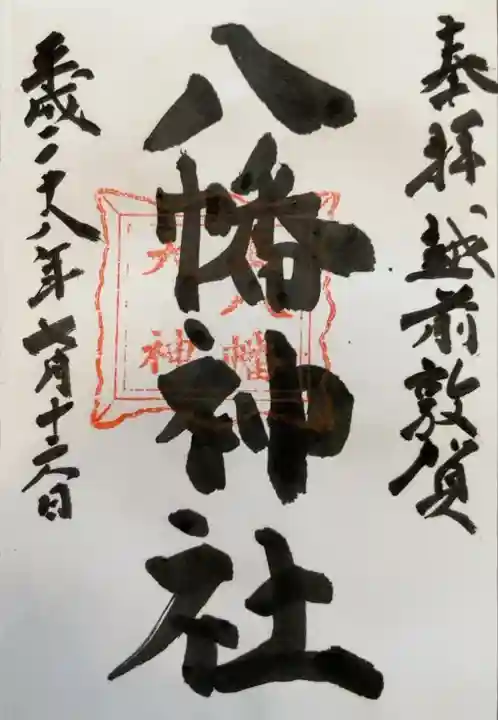 奉拝越前敦賀
八幡神社
八幡
神
平成二十八年七月十六日